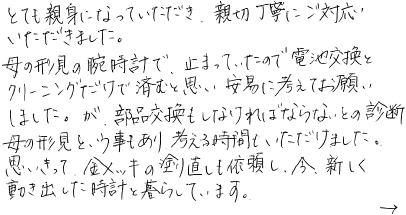 とても親身になっていただき、親切丁寧にご対応
いただきました。
母の形見の腕時計で、止まっていたので電池交換と
クリーニングだけで済むと思い 安易に考えてお願い
しました。が、部品交換もしなければならないとの診断
母の形見という事もあり 考える時間もいただけました。
思いきって、金メッキの塗り直しも依頼し、今、新しく
動き出した時計と暮らしています。
→